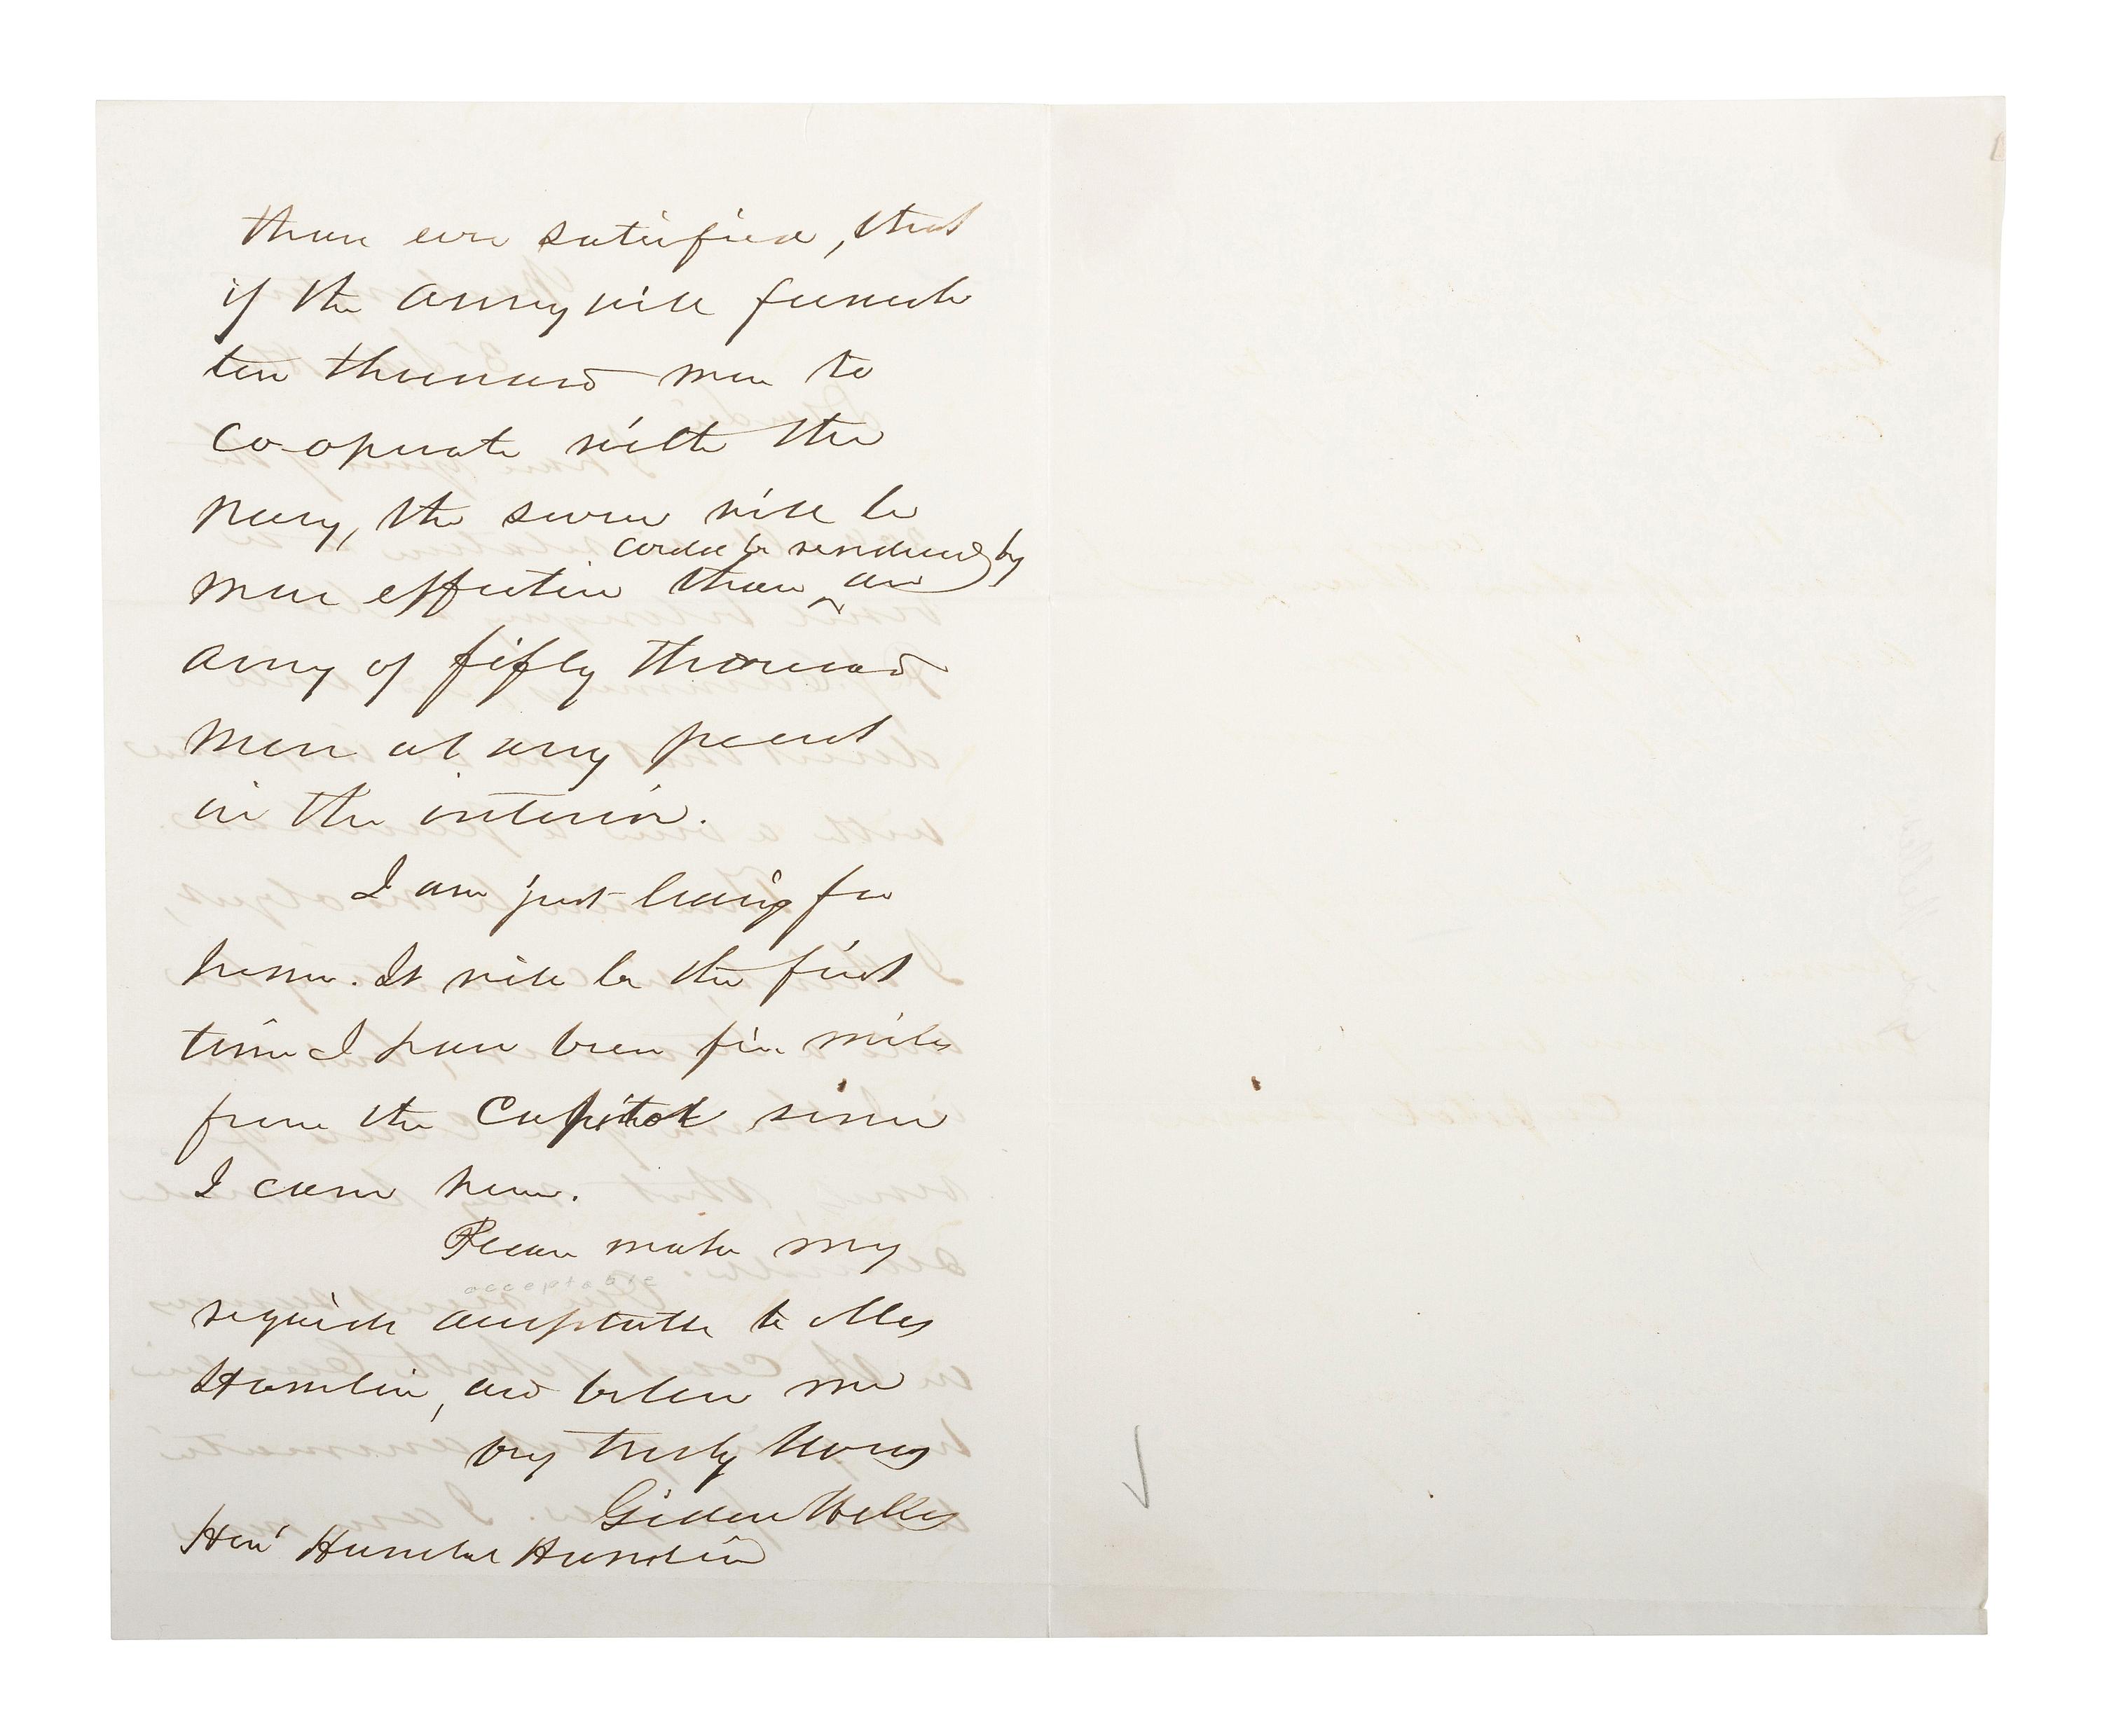 than ever satisfied, that
if the Army will furnish
ten thousand men to
co-operate with the
Navy, the service will be
could be rendered by
more effective than ^ an
army of fifty thousand
men at any point
in the interior.
I am just leaving for
home. It will be the first
time I have been five miles
from the Capitol since
I came here.
Please make my
acceptable
regards acceptable to Mrs
Hamlin, and believe me
very truly Yours
Gideon Welles
Hon' Hannibal Hamlin